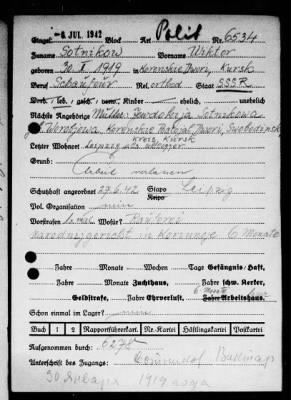 Eingel. - 8. JUL. 1942 Block Art Polit Nr. 6534
Zuname Sotnikow Vorname Wiktor
geboren 30.I.1919 in Korenskie Dwori, Kursk
Beruf Schauffeur Rel. orthod Staat SSSR
Verh., led., gesch., verw. Kinder ehelich, unehelich
Nächste Angehörige Mutter: Jewdokija Sotnikowa
Korenskie Dwori,
Kreis Kursk
Letzter Wohnort Leipzig
Grund:
Arbeit verlassen
Schutzhaft angeordnet 27.6.42 Stapo Leipzig
Kripo
Pol. Organisation nein
Vorstrafen 1 mal Wofür?
6 Monate
Jahre Monate Wochen Tage Gefängnis-Haft,
Jahre Monate Zuchthaus, Jahre schw. Kerker,
6 Monate
Geldstrafe, Jahre Ehrverlust, Jahre Arbeitshaus.
Schon einmal im Lager? nein
Buch 1 2 Rapportführerkart. Nr.-Kartei Häftlingskartei Postkartei
Aufgenommen durch: 6278
Unterschrift des Zugangs:
30 Января 1919 года